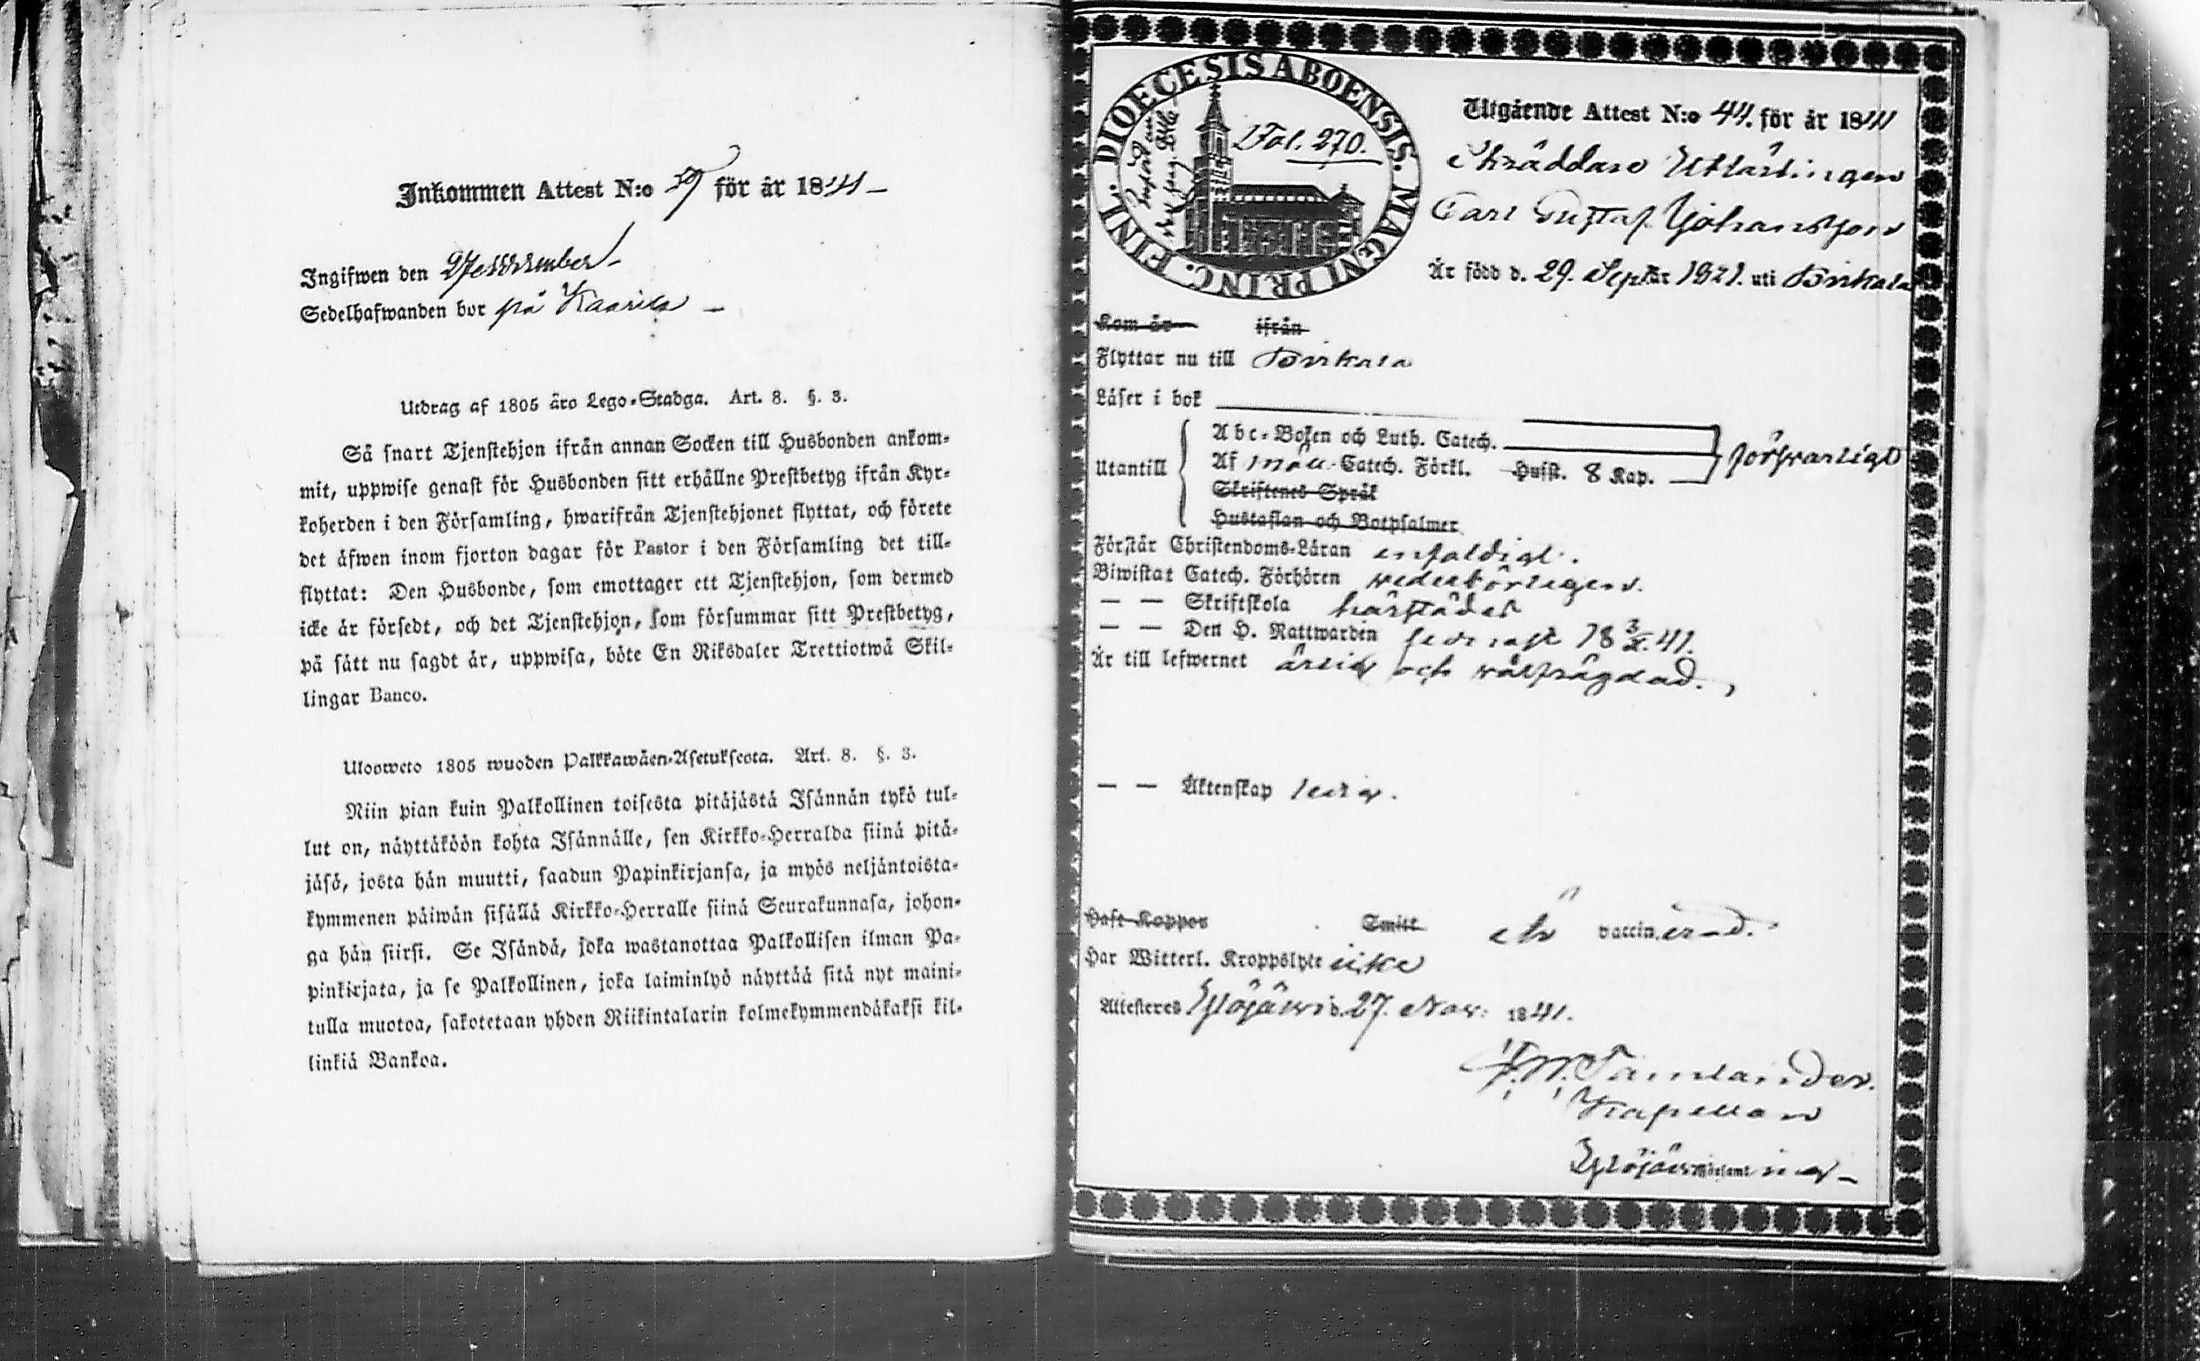 Inkommen Attest N:o 59 för år 1841 –
Ingifwen den 29 November –
Sedelhafwanden bor på Kaarila –
Utdrag af 1805 åro Lego-Stadga. Art. 8. §. 3.
Så snart Tjenstehjon ifrån annan Socken till Husbonden ankom-
mit, uppwise genast för Husbonden sitt erhållne Prestbetyg ifrån Kyr-
koherden i den Församling, hwarifrån Tjenstehjonet flyttat, och förete
det äfwen inom fjorton dagar för Pastor i den Församling det till-
flyttat: Den Husbonde, som emottager ett Tjenstehjon, som dermed
icke är försedt, och det Tjenstehjon, som försummar sitt Prestbetyg,
på sätt nu sagdt är, uppwisa, böte En Riksdaler Trettiotwå Skil-
lingar Banco.
Ulosweto 1805 wuoden Palkkawäen-Asetuksesta. Art. 8. §. 3.
Niin pian kuin Palkollinen toisesta pitäjästä Isännän tykö tul-
lut on, näyttäköön kohta Isännälle, sen Kirkko-Herralda siinä pitä-
jäsä, josta hän muutti, saadun Papinkirjansa, ja myös neljäntoista-
kymmenen päiwän sisällä Kirkko-Herralle siinä Seurakunnasa, johon-
ga hän siirsi. Se Isändä, joka wastanottaa Palkollisen ilman Pa-
pinkirjata, ja se Palkollinen, joka laiminlyö näyttää sitä nyt maini-
tulla muotoa, sakotetaan yhden Riikintalarin kolmekymmendäkaksi kil-
linkiä Bankoa.
DIOECESIS ABOENSIS. MAGNI PRINC. FINL.
Fol. 270.
Utgående Attest N:o 44. för år 1841
Skräddare Uttärlingen
Carl Gustaf Johansson
Är född d. 29. Sept. år 1821. uti Birkala
Kom år ifrån
Flyttar nu till Birkala
Läser i bok
Abc-Boken och Luth. Catech.
Utantill Af Möll. Catech. Förkl. Hust. 8 Kap. försvarligt
Skriftenes Språk
Hustaflan och Botpsalmer
Förstår Christendoms-Läran enfaldigt.
Biwistat Catech. Förhören wederbörligen.
— — Skriftskola härstädes
— — Den H. Nattwarden senast 18 3/X. 41.
Är till lefwernet ärlig och välfrägdad.
— — Äktenskap ledig.
Haft Koppor Smitt är vaccinerad.
Har Witterl. Kroppslyte icke
Attesteres Ylöjärvi d. 27. Nov. 1841.
Tamlander.
Kapellan
Ylöjärvi